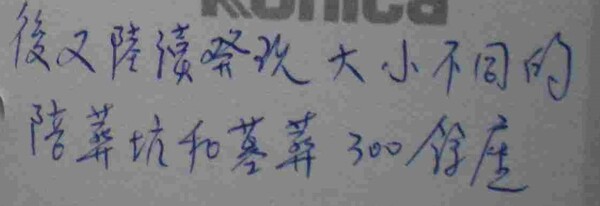 Konica
後又陸續發现大小不同的
陪葬坑和墓葬300餘座